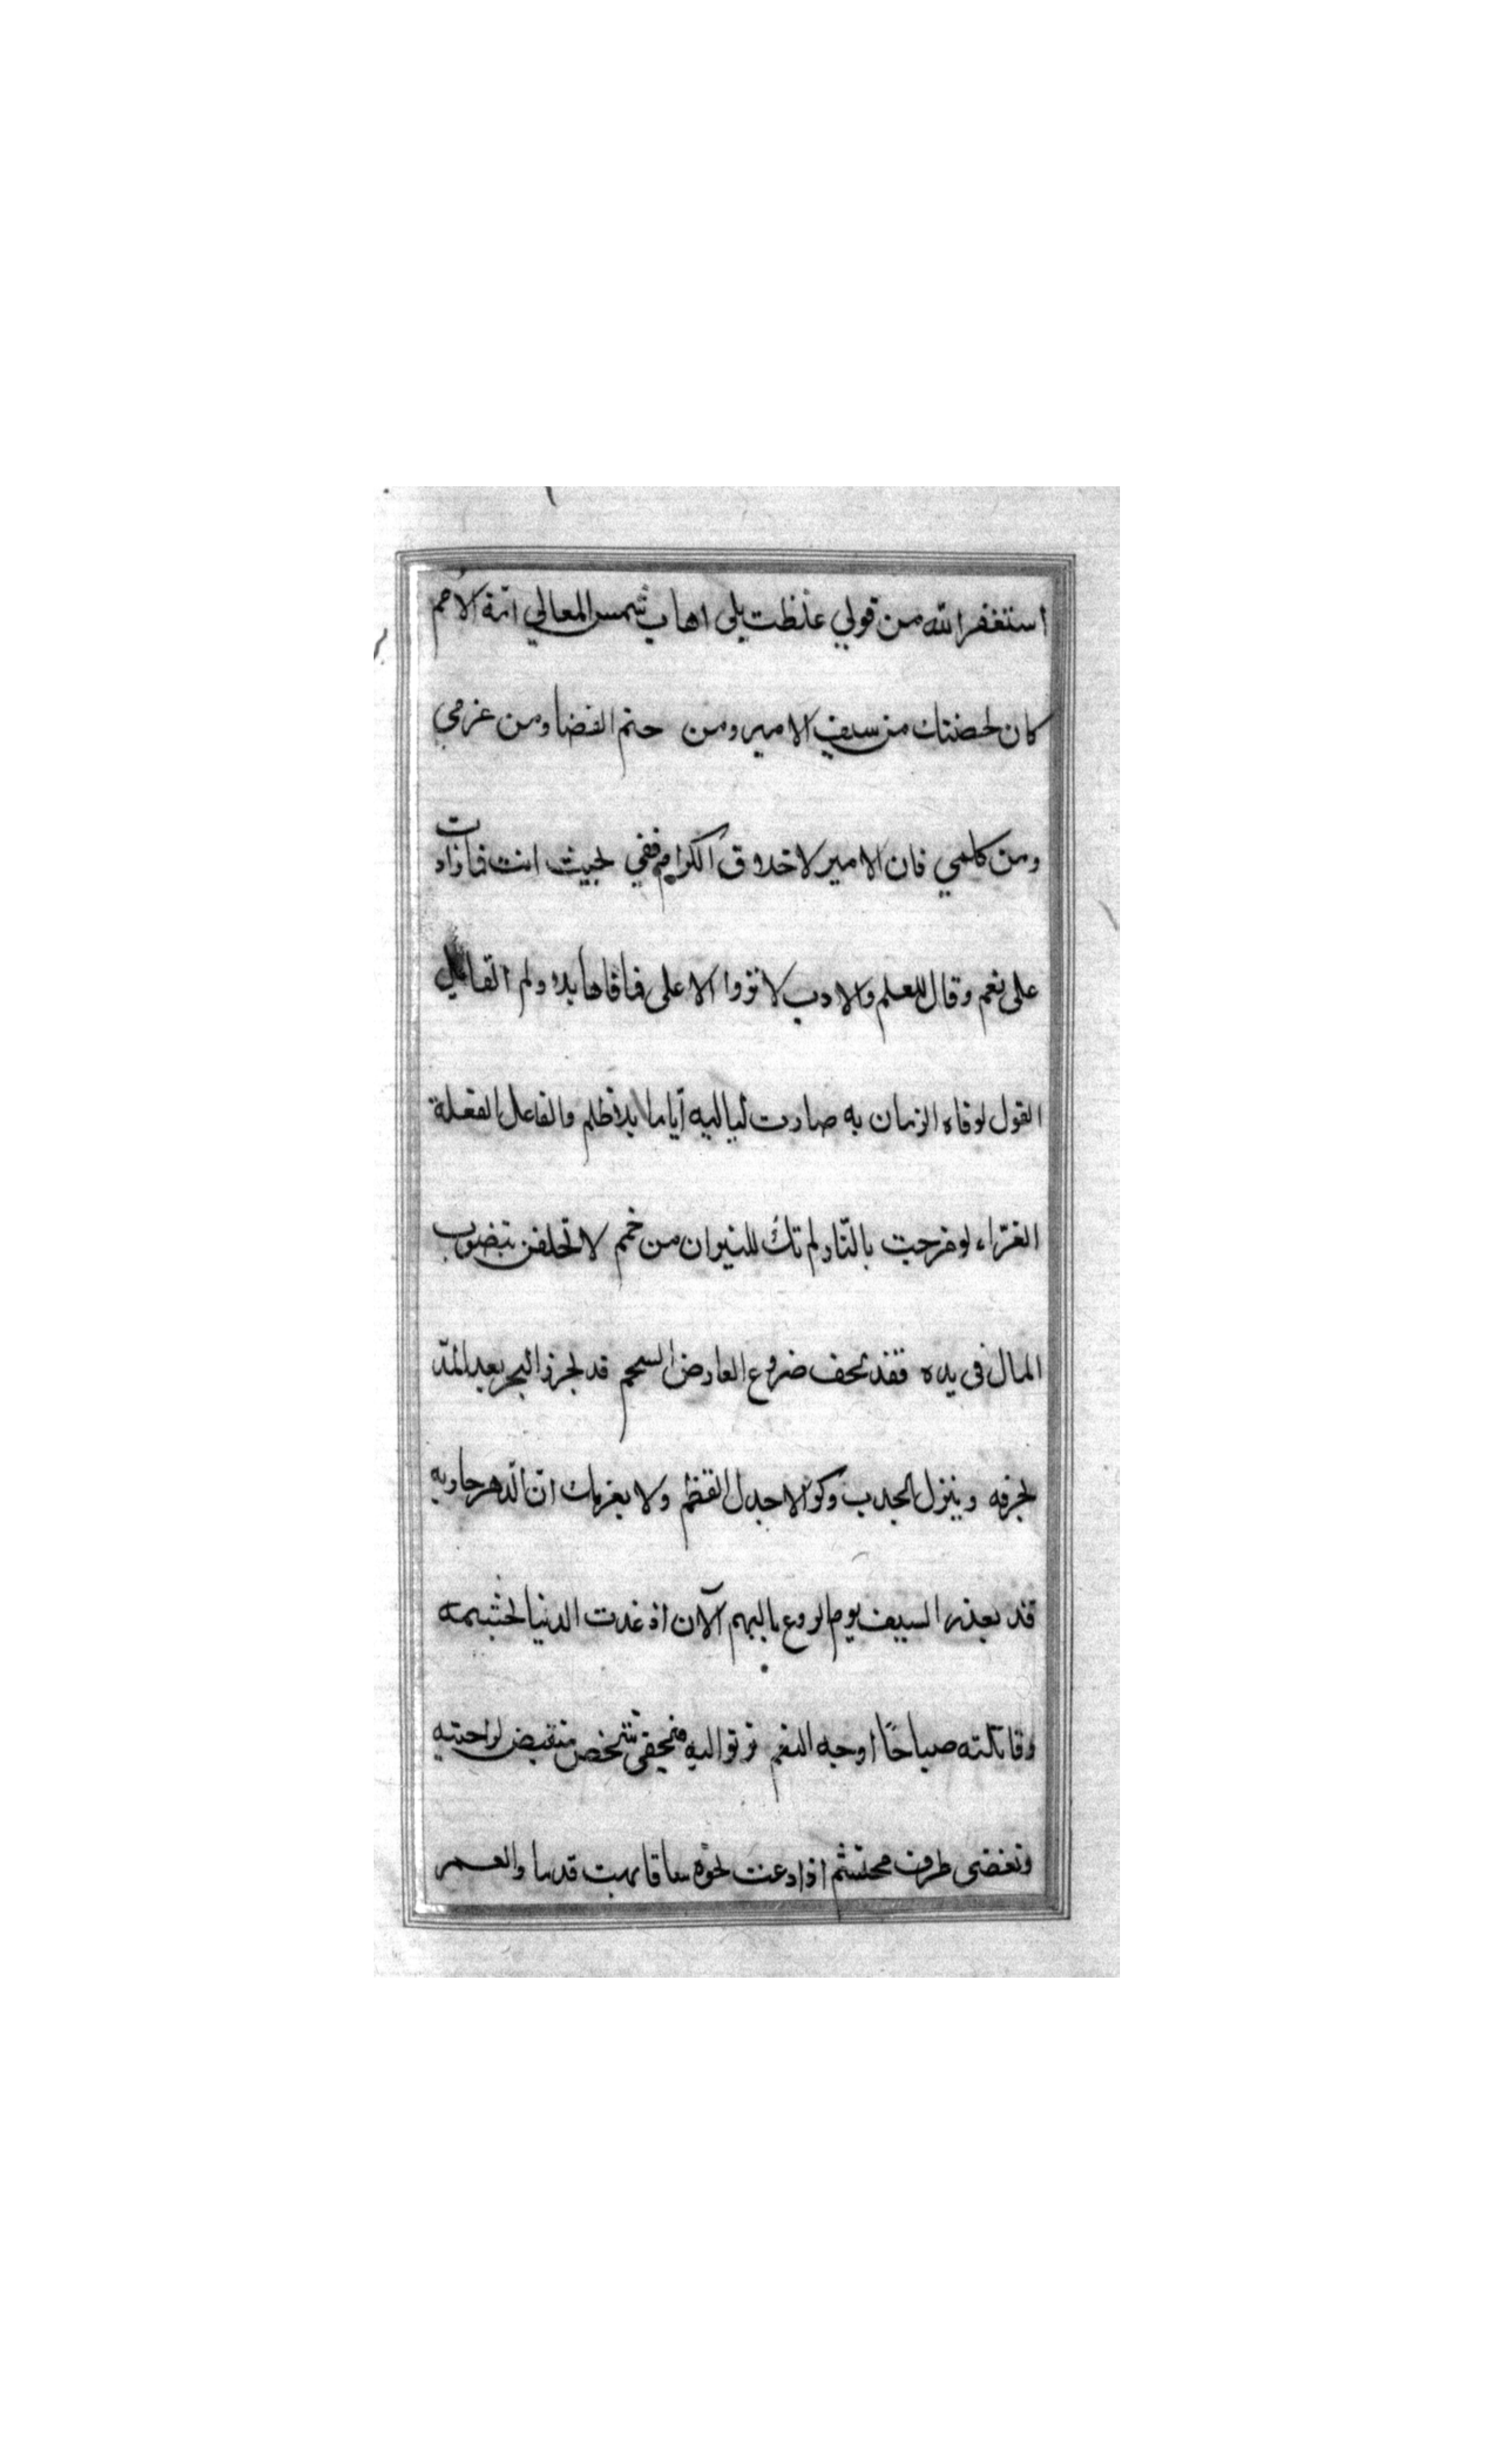 استغفر الله من قولي غلطت بلى اهاب شمس المعالي امة الامم
كان لحضتك من سيف الامير ومن حتم القضا ومن عزمي
ومن كلمي فان الامير لاخلاق الكرام ففي لجيث انت فما زادت
على نعم وقال للعلم والادب لا تزوا الا على فافاها بلا ولم القائل
القول لوفاه الزمان به صارت لياليه اياما بلا ظلم والفاعل الفعلة
الغرّاء لو مزجت بالنّار لم تك للنيران من حمم لا تحلفن بنضوب
المال في يده فقد تجف ضروع العارض السجم قد لجزر البحر بعد المدّ
لجرفه وينزل الجدب وكر الاجدل القطم ولا يغرنك انّ الدهر حاربه
قد يعذر السيف يوم الروع بالبهم الآن اذ غدت الدنيا لحشمه
وقابلته صباحًا اوجه النعم ترنو اليه شخص منقبض لراحته
وتغضى طرف محتشم اذا دعت لحوه ساقا بهت قدما والعمر